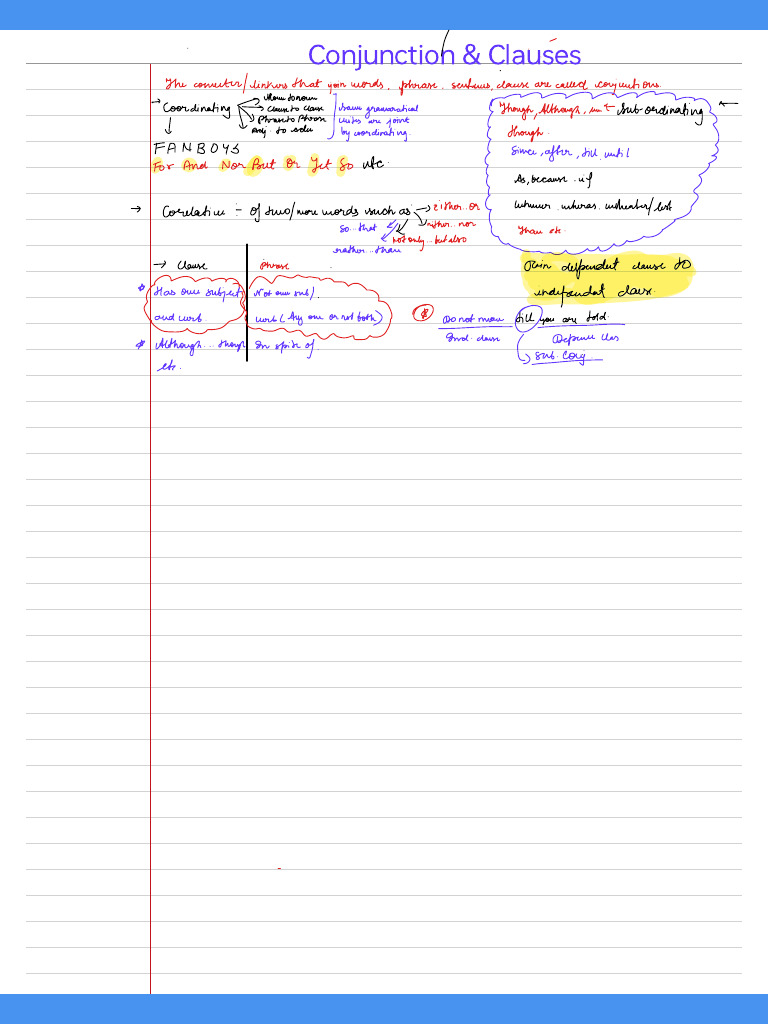 Conjunction & Clauses
The connecter/linkers that join words, phrase, sentences, clause are called conjunctions.
→ Coordinating
Noun to noun
Clause to Clause
Phrase to Phrase
Adj. to adv
Same grammatical
units are joint
by coordinating.
FANBOYS
For And Nor But Or Yet So etc.
Though, Although, Sub-ordinating
though.
Since, after, till, until
As, because, if
whenever, whereas, whether/lest
Than etc.
→ Corelative :- of two/more words such as → either..or
neither..nor
So...that
Not only...but also
rather...than
Join dependent clause to
independent clause.
→ Clause phrase
Has one subject
and verb
Not one sub/
verb (Any one or not both)
Although...though
etc.
In spite of
Do not move till you are told.
Ind. clause
Depend. Clas
Sub. Conj